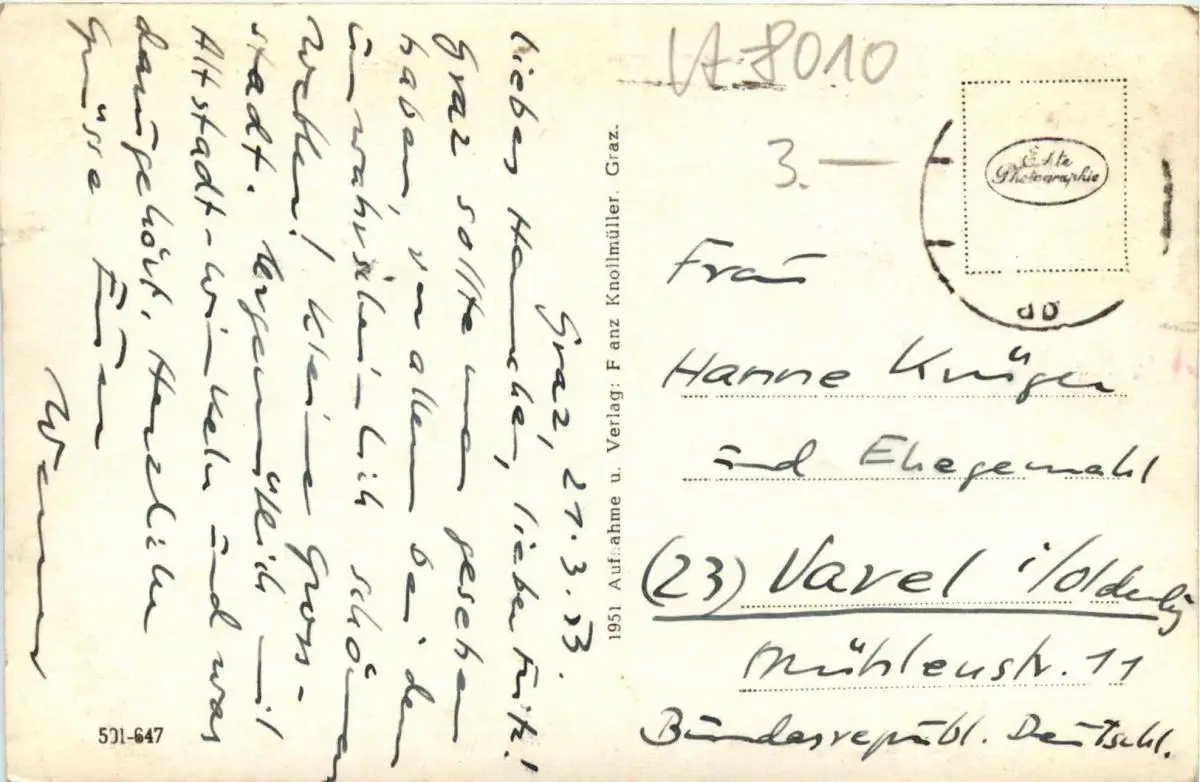 Graz, 21.3.53.
liebes Hannchen, lieber Fritz!
Graz sollte man gesehen
haben, vor allem bei dem
unwahrscheinlich schönen
Wetter! Kleine Gross-
stadt. Urgemütlich mit
Altstadt-Winkeln und was
dazugehört. Herzliche
Grüsse Euer
Werner
501-647
1951 Aufnahme u. Verlag: F anz Knollmüller. Graz.
VA 8010
3.—
Echte
Photographie
Frau
Hanne Krüger
und Ehegemahl
(23) Varel i/Oldenbg
Mühlenstr. 11
Bundesrepubl. Deutschl.